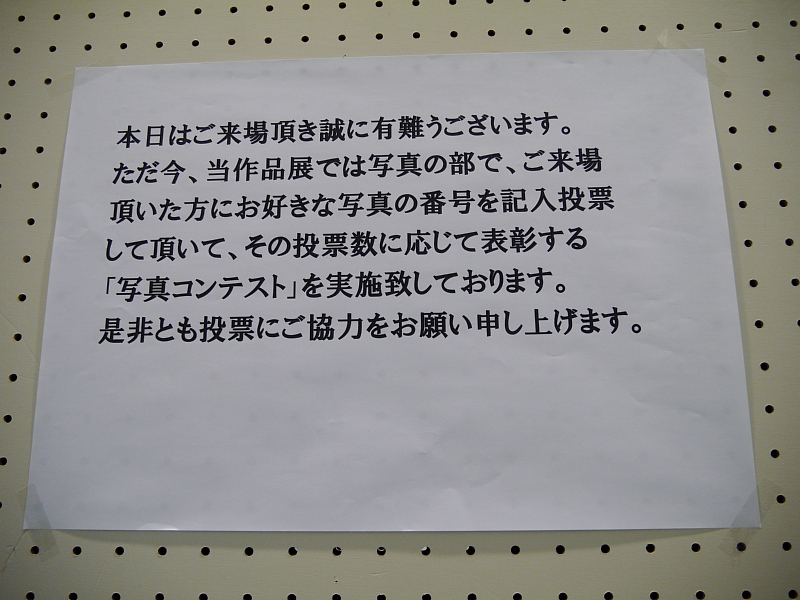 本日はご来場頂き誠に有難うございます。
ただ今、当作品展では写真の部で、ご来場
頂いた方にお好きな写真の番号を記入投票
して頂いて、その投票数に応じて表彰する
「写真コンテスト」を実施致しております。
是非とも投票にご協力をお願い申し上げます。